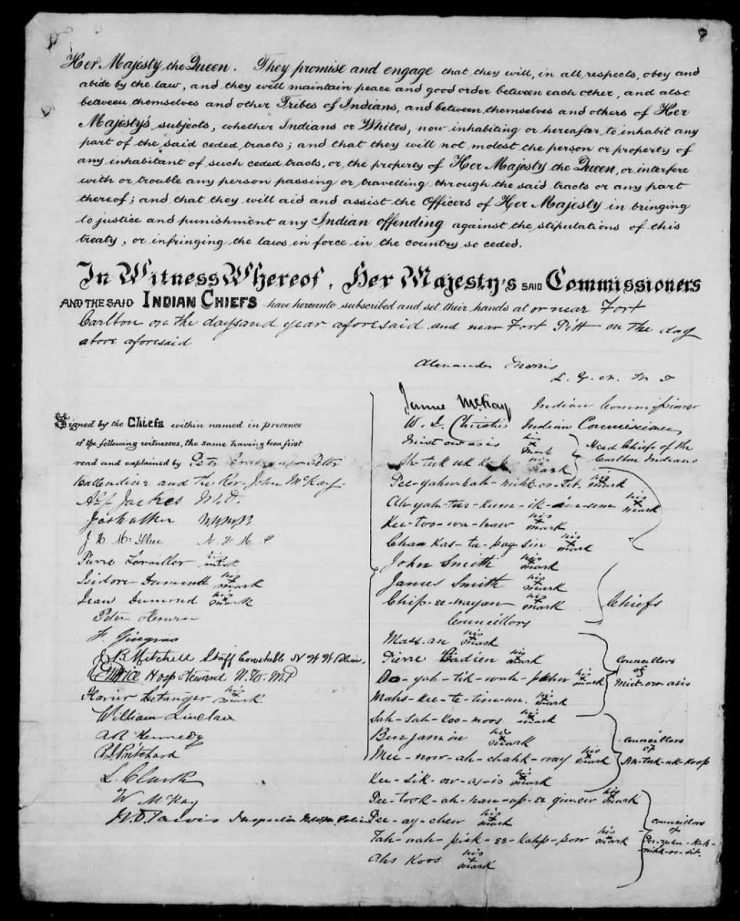 8
Her Majesty the Queen. They promise and engage that they will, in all respects, obey and
abide by the law, and they will maintain peace and good order between each other, and also
between themselves and other Tribes of Indians, and between themselves and others of Her
Majesty's subjects, whether Indians or Whites, now inhabiting or hereafter to inhabit any
part of the said ceded tracts; and that they will not molest the person or property of
any inhabitant of such ceded tracts, or the property of Her Majesty the Queen, or interfere
with or trouble any person passing or travelling through the said tracts or any part
thereof; and that they will aid and assist the Officers of Her Majesty in bringing
to justice and punishment any Indian offending against the stipulations of this
treaty, or infringing the laws in force in the country so ceded.
In Witness Whereof, Her Majesty's said Commissioners
and the said Indian Chiefs have hereunto subscribed and set their hands at or near Fort
Carlton on the days and year aforesaid and near Fort Pitt on the day
above aforesaid
Alexander Morris
James McKay Indian Commissioner
W. J. Christie Indian Commissioner
Mist-ow-asis his x mark
his x mark
Head Chiefs of the Carlton Indians
Pee-yahn-kah-nihk-oo-sit his x mark
Ah-yah-tus-kum-ik-im-um his x mark
Kee-too-wa-haw his x mark
Chakas-ta-pay-sin his x mark
John Smith his x mark
James Smith his x mark
Chip-ee-wayan his x mark
Chiefs
Councillors
Massan his x mark
Pierre Cadien his x mark
Oo-yah-tik-wah-pahn his x mark
Mahs-kee-te-tim-un his x mark
Councillors of Mist-ow-asis
Sah-sah-koo-moos his x mark
Benjamin his x mark
Mee-now-ah-chahk-way his x mark
Kee-sik-ow-as-is his x mark
Councillors of Ah-tuk-uk-koop
Pee-took-ah-han-up-ee gin-ew his x mark
Pee-ay-chew his x mark
Tah-wah-pisk-ee-kahp-pow his x mark
Ahs Koos his x mark
Councillors of
Signed by the Chiefs within named in presence
of the following witnesses, the same having been first
read and explained by Peter Erasmus, Peter
Ballendine and the Rev. John McKay
A. G. Jackes M.D.
Jos. Walker NWMP
J. H. McIllree N W M P
Pierre Levailler his x mark
Isidore Dumond his x mark
Jean Dumond his x mark
Peter Hourie
F. Gingras
J. B. Mitchell Staff Constable N W M Police
Hosp. Steward N. W. M. P
Xavier Letanger his x mark
William Sinclair
A. R. Kennedy
R. J. Pritchard
L. Clarke
W. McKay
W. D. Jarvis Inspector N.W.M. Police